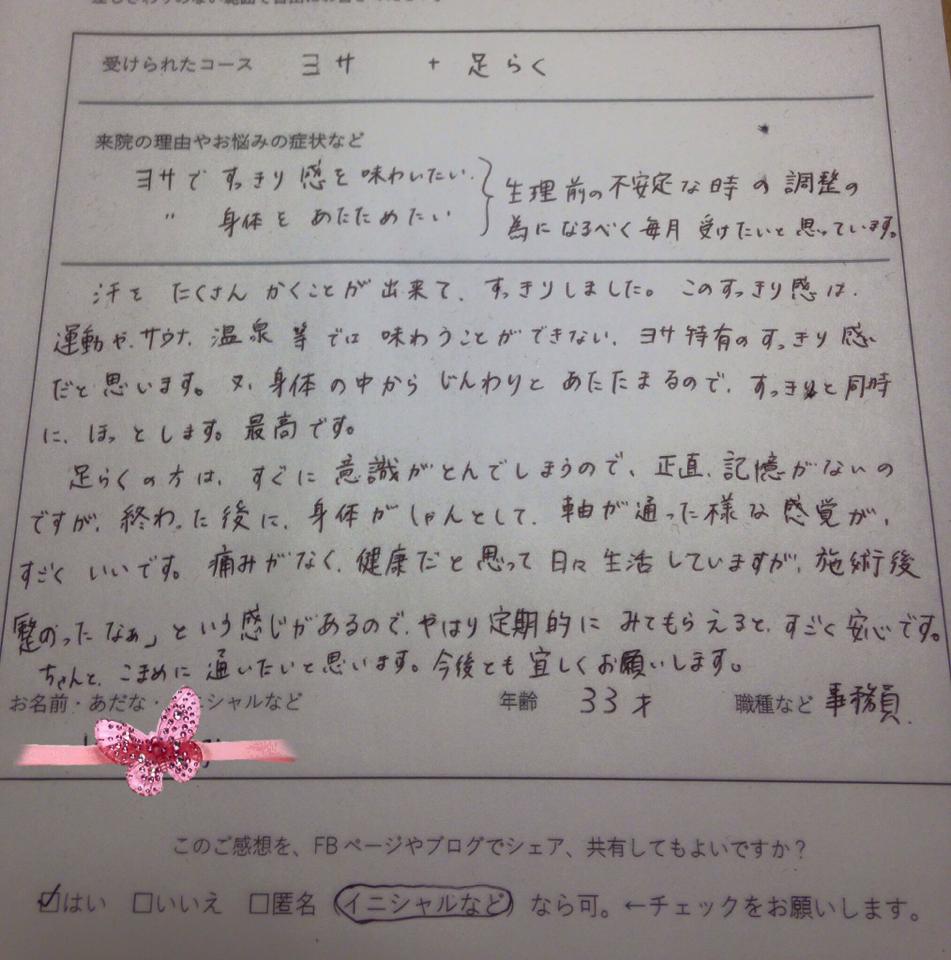 受けられたコース ヨサ + 足らく
来院の理由やお悩みの症状など
ヨサで すっきり感を味わいたい。
〃 身体を あたためたい
生理前の不安定な時の調整の
為になるべく毎月受けたいと思っています。
汗を たくさん かくことが出来て、すっきりしました。このすっきり感は、
運動や、サウナ、温泉等では味わうことができない、ヨサ特有のすっきり感
だと思います。又、身体の中からじんわりとあたたまるので、すっきりと同時
に、ほっとします。最高です。
足らくの方は、すぐに意識がとんでしまうので、正直、記憶がないの
ですが、終わった後に、身体がしゃんとして、軸が通った様な感覚が、
すごくいいです。痛みがなく、健康だと思って日々生活していますが、施術後
整のったなぁ」という感じがあるので、やはり定期的にみてもらえると、すごく安心です。
ちゃんと、こまめに通いたいと思います。今後とも宜しくお願いします。
お名前・あだな・ シャルなど 年齢 33才 職種など 事務員
このご感想を、FBページやブログでシェア、共有してもよいですか？
☑はい □いいえ □匿名（イニシャルなど）なら可。←チェックをお願いします。